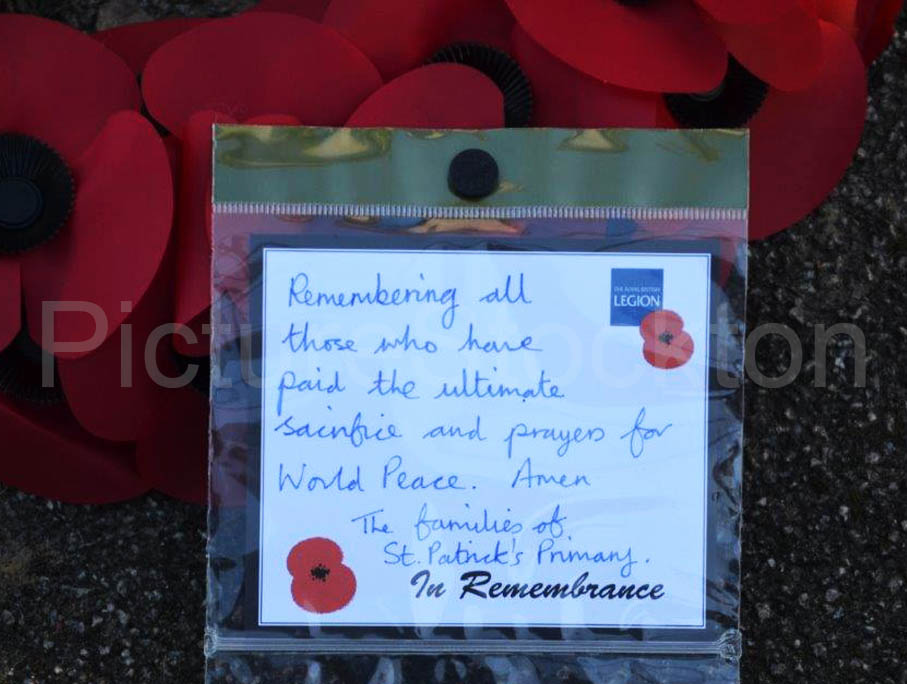 Remembering all
those who have
paid the ultimate
sacrifice and prayers for
World Peace. Amen
The families of
St. Patrick's Primary.
In Remembrance
THE ROYAL BRITISH
LEGION
Picture Stockton